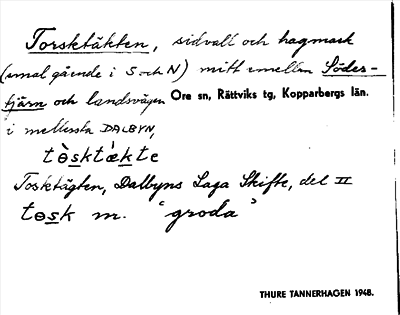 Torsktäkten, sidvall och hagmark
(smal gående i S och N) mitt emellan Södes-
tjärn och landsvägen Ore sn, Rättviks tg, Kopparbergs län.
i mellersta DALBYN,
tɵ̀sktǽkte
Tosktägten, Dalbyns Laga Skifte, del II
tɵsk m. ‘groda’
THURE TANNERHAGEN 1948.